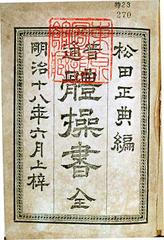 特23
270
松田正典編
普通
體操書 全
明治十八年六月上梓